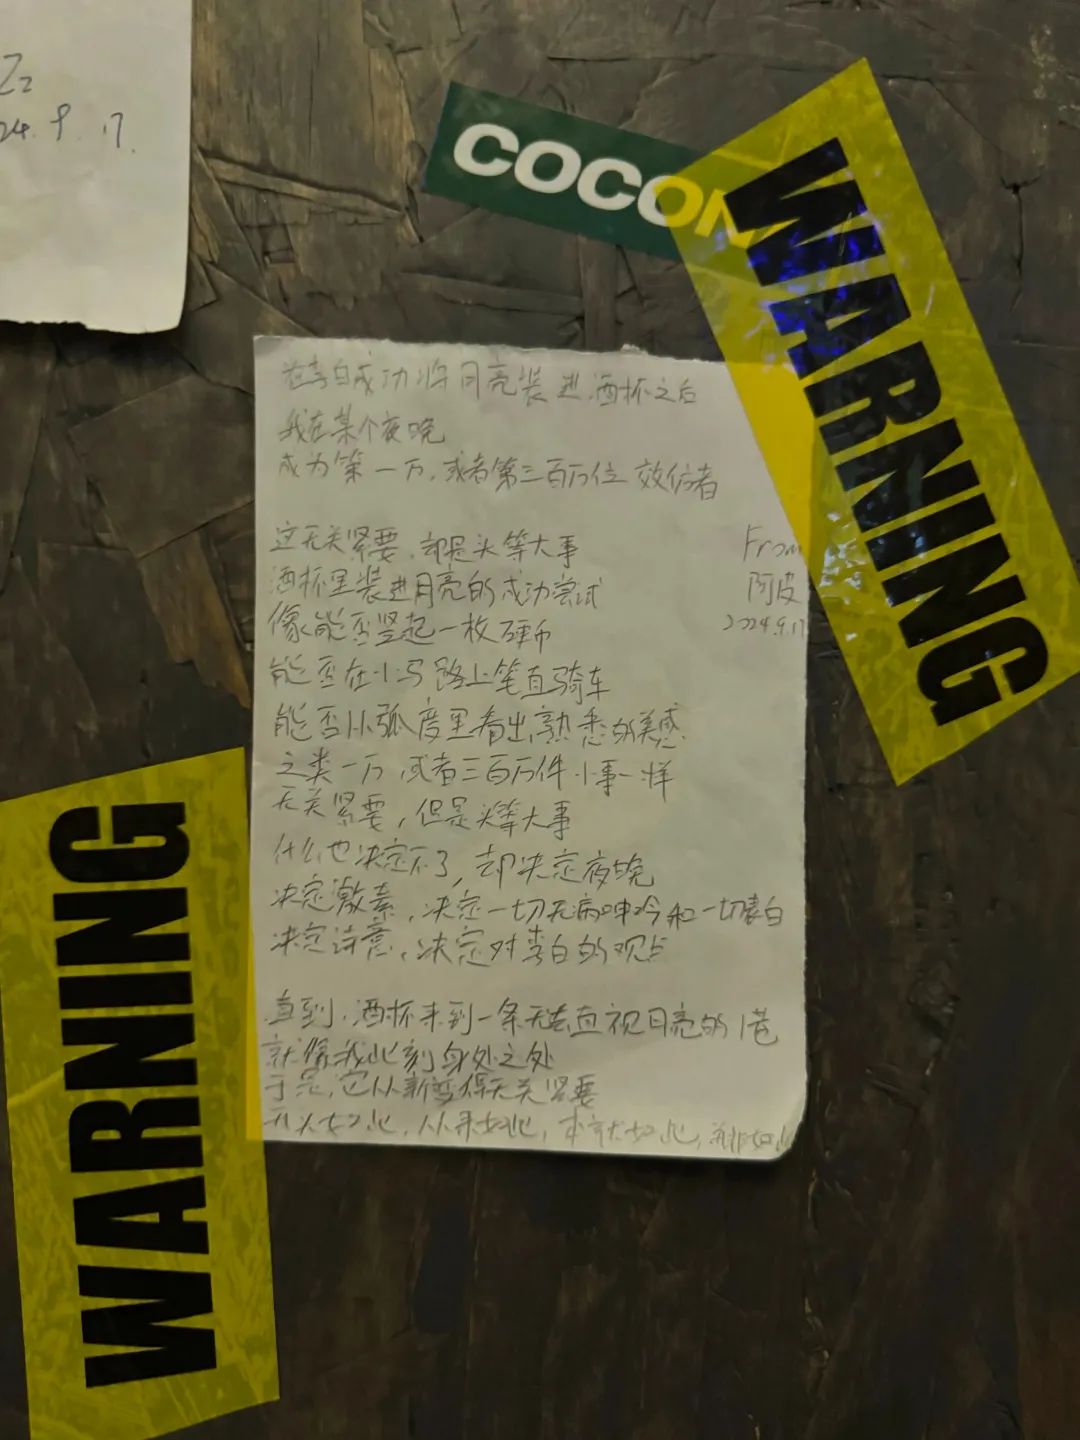 Z2
24.9.17.
COCON
WARNING
在李白成功将月亮装进酒杯之后
我在某个夜晚
成为第一万,或者第三百万位效仿者
这无关紧要,却是头等大事
酒杯里装进月亮的成功尝试
像能否竖起一枚硬币
能否在小马路上笔直骑车
能否从弧度里看出熟悉的美感
之类一万或者三百万件小事一样
无关紧要,但是头等大事
什么也决定不了,却决定夜晚
决定激素,决定一切无病呻吟和一切表白
决定诗意,决定对李白的观点
直到,酒杯来到一条无法直视月亮的巷
就像我此刻身处之处
于是,它从新变得无关紧要
无关如此,从来如此,本就如此,并非如此
From
阿皮
2024.9.17
WARNING